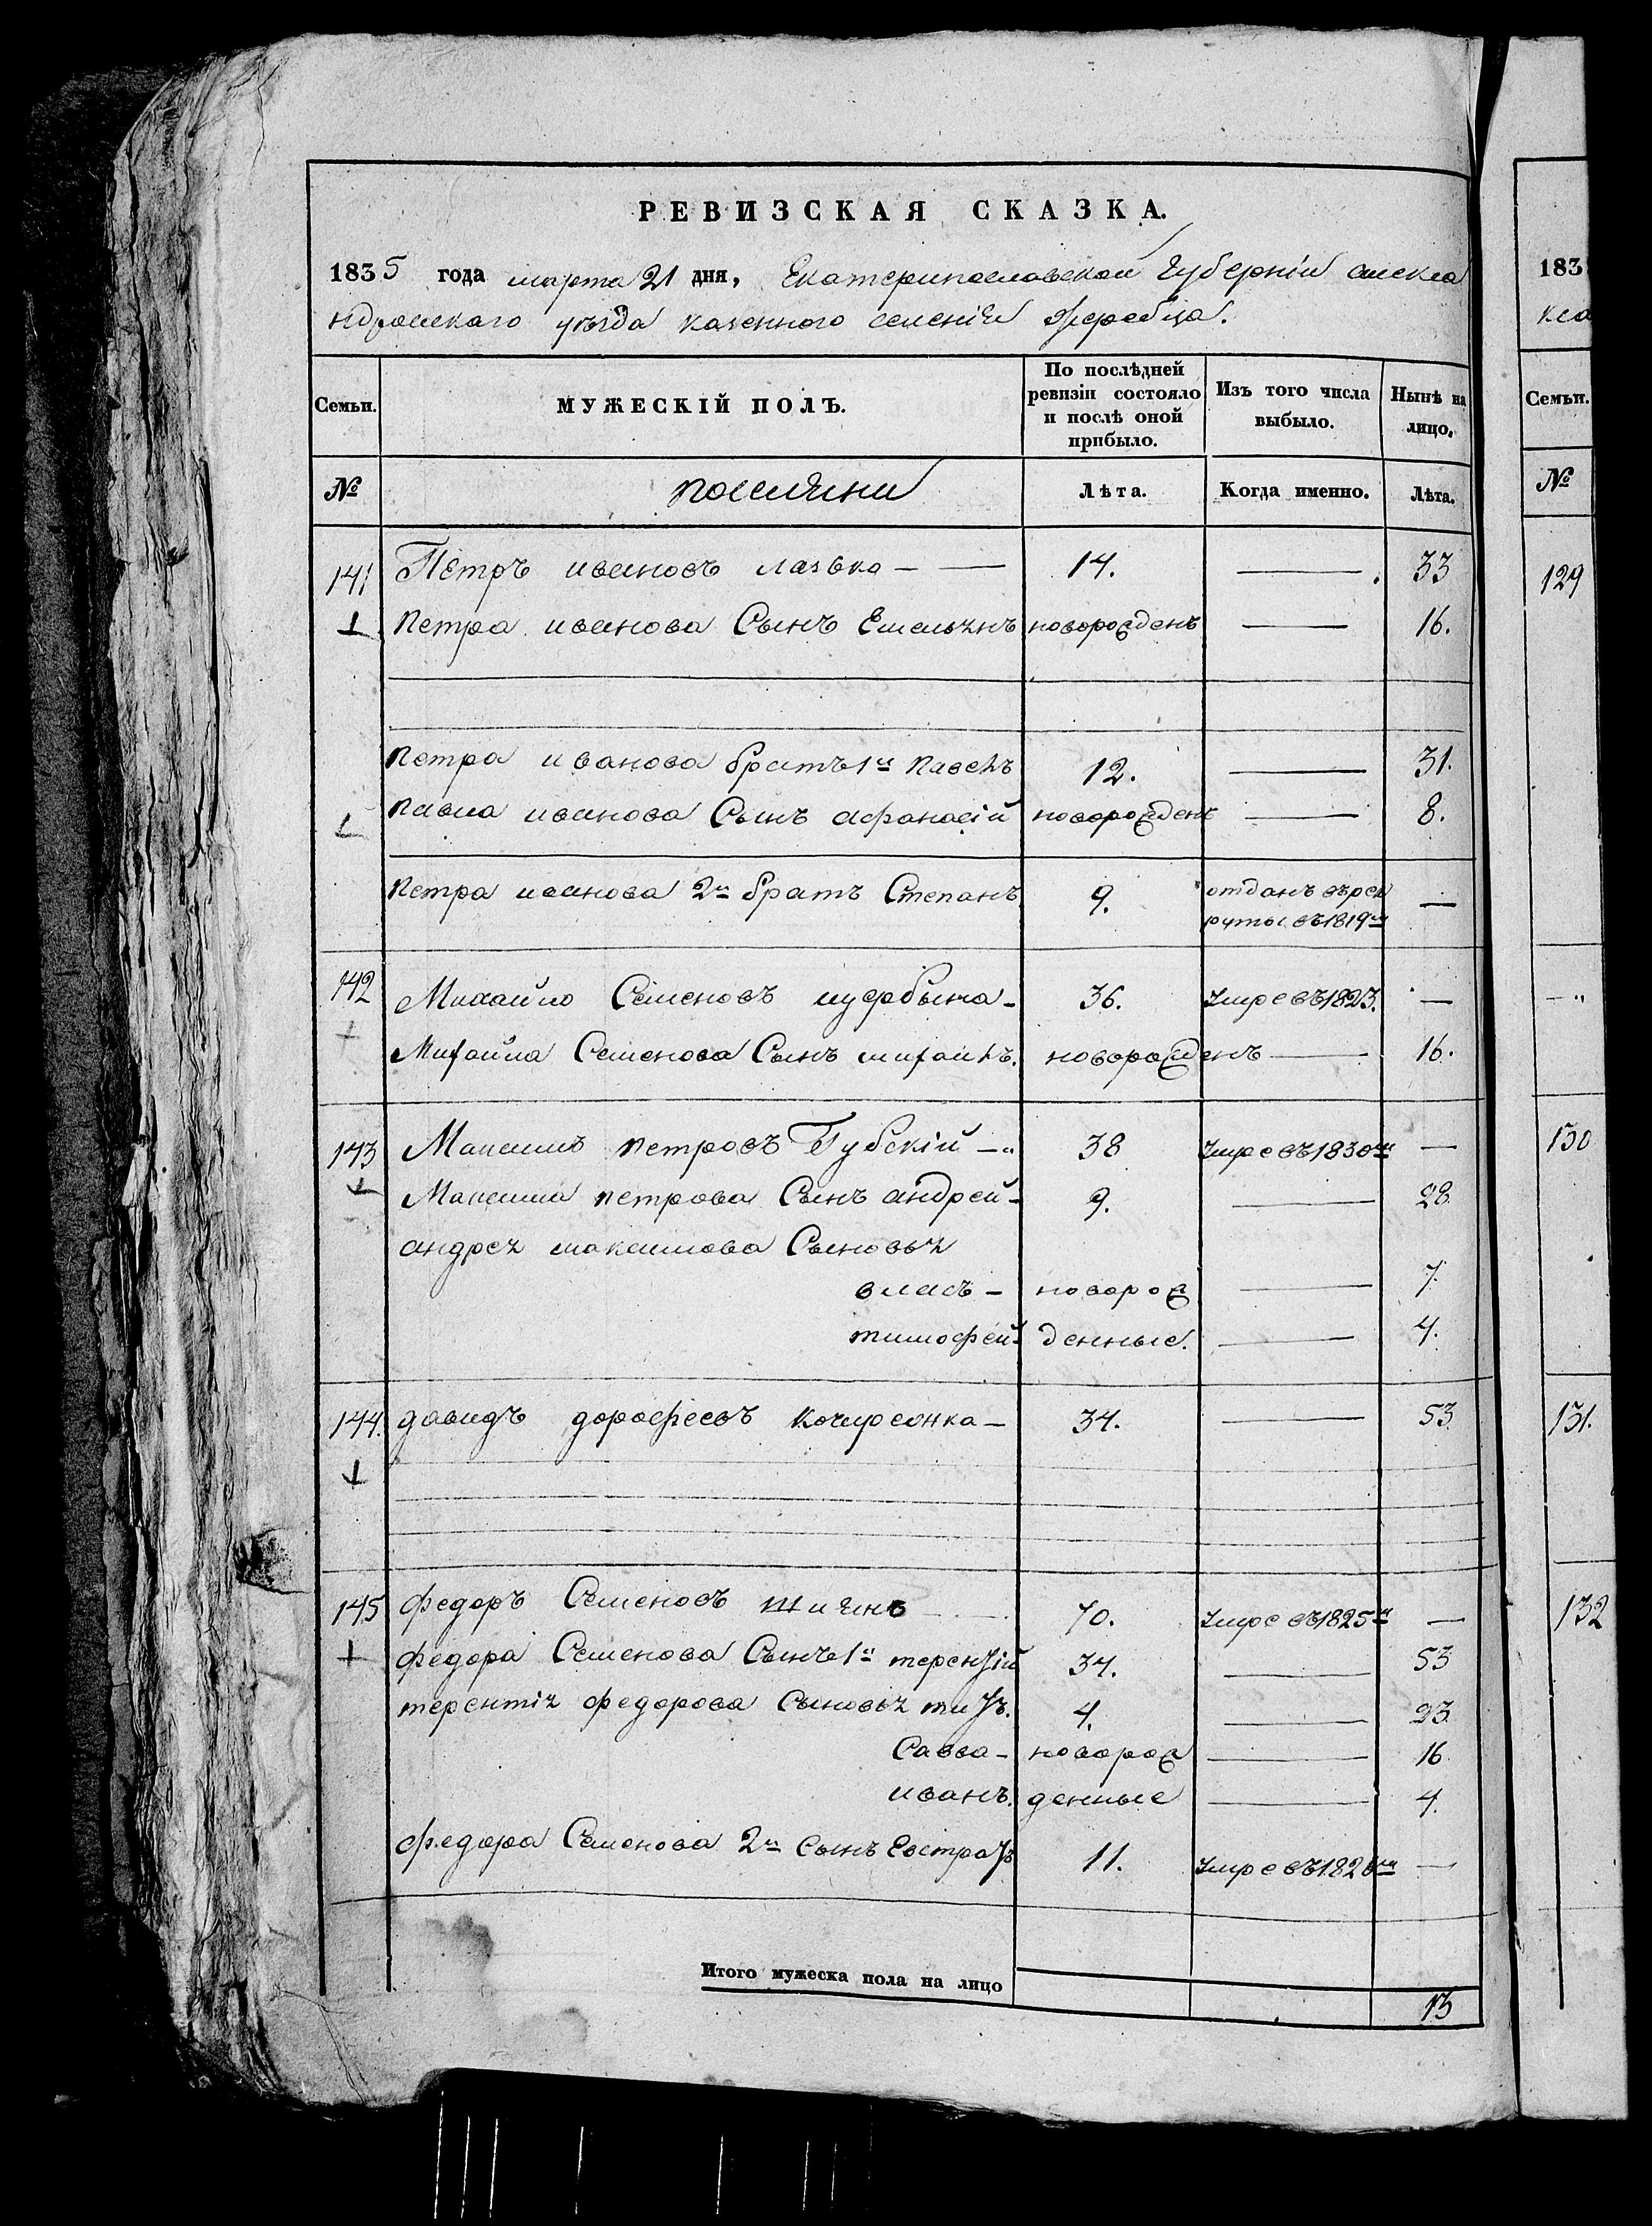 РЕВИЗСКАЯ СКАЗКА.
1835 года марта 21 дня, Екатеринославской губерніи алекса
ндровскаго уѣзда казенного селенія Жеребца.
Семьи. МУЖЕСКІЙ ПОЛЪ. По послѣдней ревизіи состояло и послѣ оной прибыло. Изъ того числа выбыло. Нынѣ на лицо.
№ поселяни Лѣта. Когда именно. Лѣта.
141 Петръ ивановъ лазька 14. 33
Петра иванова Сынъ Емельянъ новорожденъ 16.
Петра иванова братъ 1й павелъ 12. 31.
павла иванова Сынъ афанасій новорожденъ 8.
петра иванова 2й братъ Степанъ 9. отданъ въ рек
руты въ 1819м
142 Михайло Семеновъ 36. Умре въ 1823.
Михайла Семенова Сынъ михаилъ. новорожденъ 16.
143 Максимъ петровъ Губскій 38 Умре въ 1830м
Максима петрова Сынъ андрей 9. 28
андрея максимова Сыновья
власъ новорож 7.
тимофей денные. 4.
144. давидъ дорофеевъ 34. 53
145 федоръ Семеновъ 70. Умре въ 1825м
федора Семенова Сынъ 1й терентій 34. 53
терентія федорова Сыновья титъ. 4. 23
Савва новорож 16
иванъ. денные 4.
федора Семенова 2й Сынъ Евстратъ 11. Умре въ 1826м
Итого мужеска пола на лицо 13
183
кса
Семьи.
№
129
130
131.
132